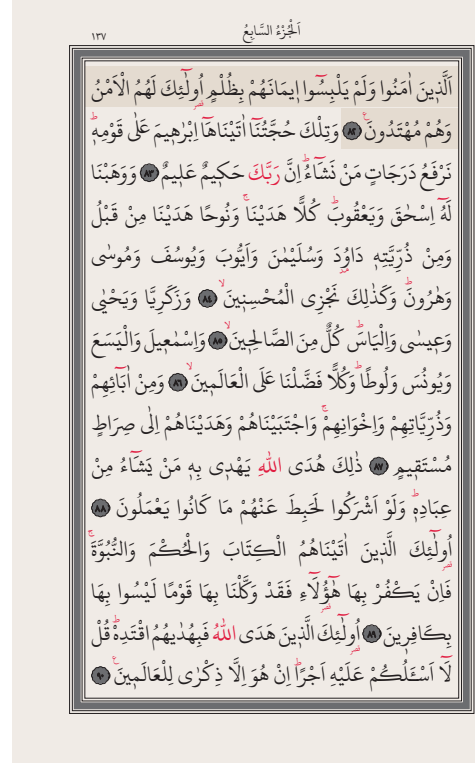 اَلْجُزْءُ السَّابِعُ
١٣٧
اَلَّذٖينَ اٰمَنُوا وَلَمْ يَلْبِسُٓوا اٖيمَانَهُمْ بِظُلْمٍ اُو۬لٰٓئِكَ لَهُمُ الْاَمْنُ
وَهُمْ مُهْتَدُونَࣖ ﴿٨٢﴾ وَتِلْكَ حُجَّتُنَٓا اٰتَيْنَاهَٓا اِبْرٰهٖيمَ عَلٰى قَوْمِهٖؕ
نَرْفَعُ دَرَجَاتٍ مَنْ نَشَٓاءُؕ اِنَّ رَبَّكَ حَكٖيمٌ عَلٖيمٌ ﴿٨٣﴾ وَوَهَبْنَا
لَهُٓ اِسْحٰقَ وَيَعْقُوبَؕ كُلًّا هَدَيْنَاۚ وَنُوحًا هَدَيْنَا مِنْ قَبْلُ
وَمِنْ ذُرِّيَّتِهٖ دَاوُ۫دَ وَسُلَيْمٰنَ وَاَيُّوبَ وَيُوسُفَ وَمُوسٰى
وَهٰرُونَؕ وَكَذٰلِكَ نَجْزِى الْمُحْسِنٖينَۙ ﴿٨٤﴾ وَزَكَرِيَّا وَيَحْيٰى
وَعٖيسٰى وَاِلْيَاسَؕ كُلٌّ مِنَ الصَّالِحٖينَۙ ﴿٨٥﴾ وَاِسْمٰعٖيلَ وَالْيَسَعَ
وَيُونُسَ وَلُوطًاؕ وَكُلًّا فَضَّلْنَا عَلَى الْعَالَمٖينَۙ ﴿٨٦﴾ وَمِنْ اٰبَٓائِهِمْ
وَذُرِّيَّاتِهِمْ وَاِخْوَانِهِمْۚ وَاجْتَبَيْنَاهُمْ وَهَدَيْنَاهُمْ اِلٰى صِرَاطٍ
مُسْتَقٖيمٍ ﴿٨٧﴾ ذٰلِكَ هُدَى اللّٰهِ يَهْدٖى بِهٖ مَنْ يَشَٓاءُ مِنْ
عِبَادِهٖؕ وَلَوْ اَشْرَكُوا لَحَبِطَ عَنْهُمْ مَا كَانُوا يَعْمَلُونَ ﴿٨٨﴾
اُو۬لٰٓئِكَ الَّذٖينَ اٰتَيْنَاهُمُ الْكِتَابَ وَالْحُكْمَ وَالنُّبُوَّةَۚ
فَاِنْ يَكْفُرْ بِهَا هٰٓؤُ۬لَٓاءِ فَقَدْ وَكَّلْنَا بِهَا قَوْمًا لَيْسُوا بِهَا
بِكَافِرٖينَ ﴿٨٩﴾ اُو۬لٰٓئِكَ الَّذٖينَ هَدَى اللّٰهُ فَبِهُدٰيهُمُ اقْتَدِهْؕ قُلْ
لَٓا اَسْـَٔلُكُمْ عَلَيْهِ اَجْرًاؕ اِنْ هُوَ اِلَّا ذِكْرٰى لِلْعَالَمٖينَࣖ ﴿٩٠﴾